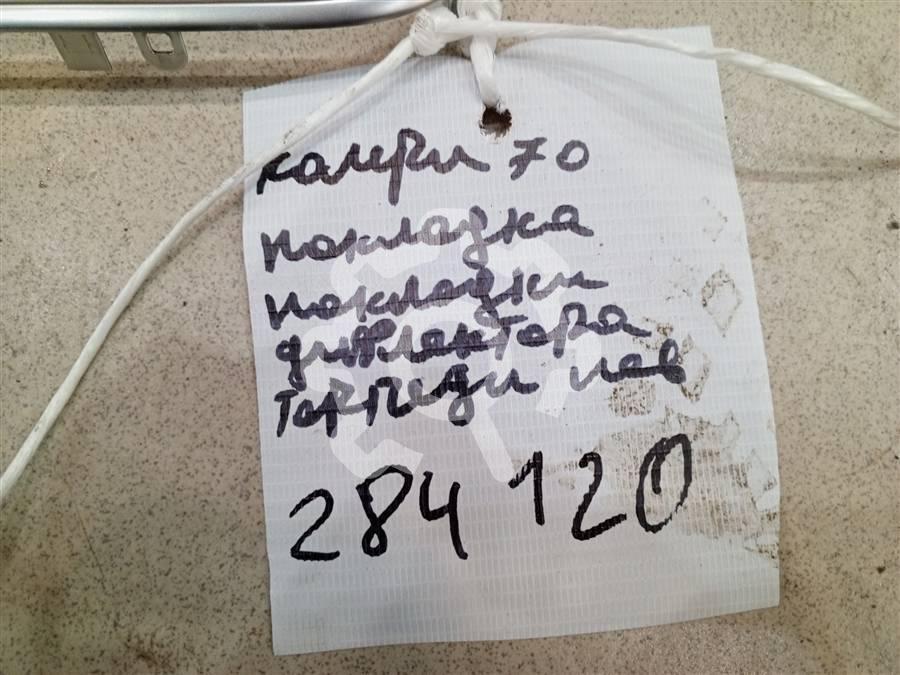 камри 70
накладка
накладки
дифлектора
торпеды лев
284 120